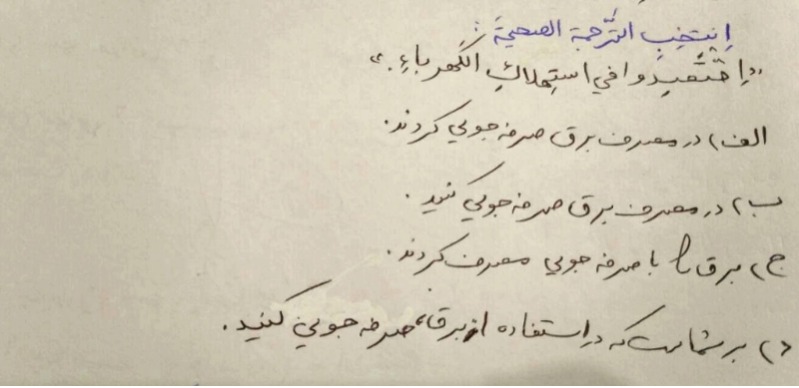 اِنتَخِبِ التَّرجَمَةَ الصحیحَةَ:
«اِقتَصِدوا في استِهلاكِ الكَهرباءِ.»
الف) در مصرف برق صرفه‌جویی کردند.
ب) در مصرف برق صرفه‌جویی کنید.
ج) برق را با صرفه جویی مصرف کردند.
د) بر شماست که در استفاده از برق، صرفه‌جویی کنید.